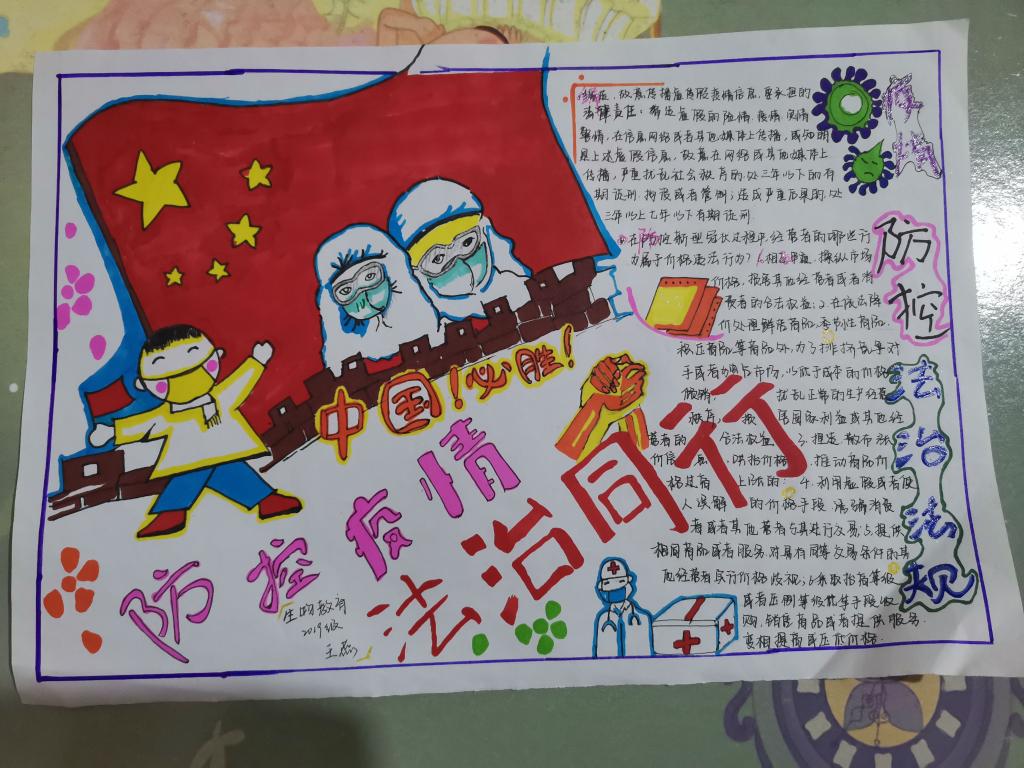 中国！必胜！
防控疫情
法治同行
生物教育
2019级
王磊
疫情
防控
法治法规
编造、故意传播虚假疫情信息，要承担的
法律责任：编造虚假的险情、疫情、灾情、
警情，在信息网络或者其他媒体上传播，或知明
是上述虚假信息，故意在网络或其他媒体上
传播，严重扰乱社会秩序的，处三年以下的有
期徒刑、拘役或者管制；造成严重后果的，处
三年以上七年以下有期徒刑
在防控新型冠状过程中，经营者的哪些行
为属于价格违法行为？1.相互串通，操纵市场
价格，损害其他经营者或者消
费者的合法权益；2.在依法降
价处理鲜活商品、季节性商品、
积压商品等商品外，为了排挤竞争对
手或者独占市场，以低于成本的价格
倾销，扰乱正常的生产经营
秩序，损害国家利益或其他经
营者的合法权益；3.捏造、散布涨
价信息，哄抬价格，推动商品价
格过高上涨的；4.利用虚假或者使
人误解的价格手段，诱骗消费
者或者其他营者与其进行交易；5.提供
相同商品或者服务，对具有同等交易条件的其
他经营者实行价格歧视；6.采取抬高等级
或者压低等级等手段收
购、销售商品或者提供服务，
变相提高或压低价格.